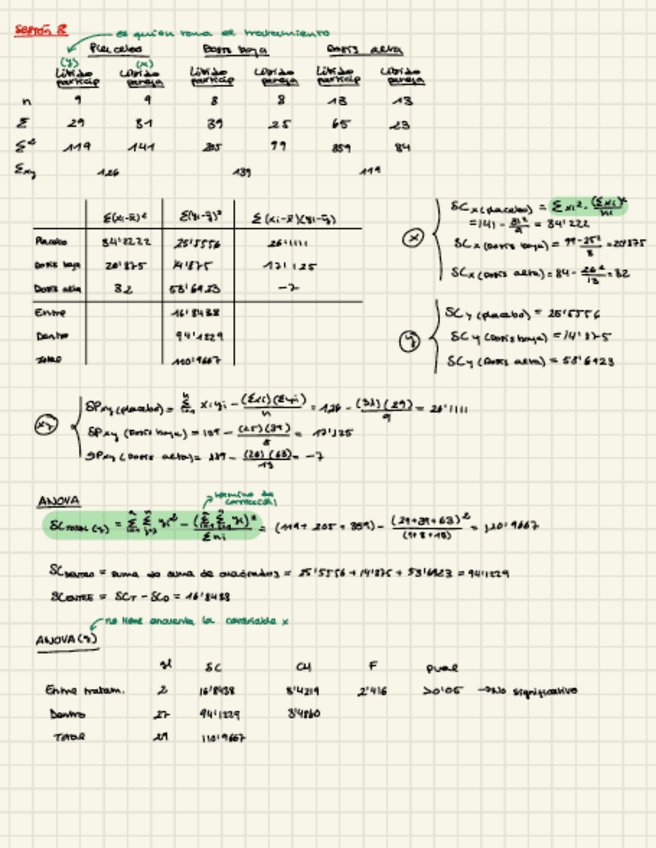 Sesión 8
es quien toma el tratamiento
Placebo Dosis baja Dosis alta
(y) (x)
Libido particip Libido pareja Libido particip Libido pareja Libido particip Libido pareja
n 9 9 8 8 13 13
Σ 29 31 39 25 65 23
Σ² 119 141 205 99 359 84
Σxy 126 139 119
Σ(xi-x̄)² Σ(yi-ȳ)² Σ(xi-x̄)(yi-ȳ)
Placebo 34'2222 25'5556 26'1111
Dosis baja 20'875 14'875 17'125
Dosis alta 32 53'6923 -7
Entre 16'8438
Dentro 94'1229
Total 110'9667
(x) SCx(placebo) = Σxi² - (Σxi)²/ni
=141 - 31²/9 = 34'222
SCx(Dosis baja) = 99 - 25²/8 = 20'875
SCx(Dosis alta) = 84 - 26²/13 = 32
(y) SCy(placebo) = 25'5556
SCy(Dosis baja) = 14'875
SCy(Dosis alta) = 53'6923
(xy) SPxy(placebo) = Σ xiyi - (Σxi)(Σyi)/n = 126 - (31)(29)/9 = 26'1111
SPxy(Dosis baja) = 139 - (25)(39)/8 = 17'125
SPxy(Dosis alta) = 119 - (26)(63)/13 = -7
ANOVA
término de corrección
SCTOTAL(y) = ΣΣ yi² - (ΣΣ yi)²/Σni = (119 + 205 + 359) - (29+39+63)²/(9+8+13) = 110'9667
SCDENTRO = suma de suma de cuadrados = 25'5556 + 14'875 + 53'6923 = 94'1229
SCENTRE = SCT - SCD = 16'8438
no tiene encuenta la covariable x
ANOVA(y)
gl SC CM F pval
Entre tratam. 2 16'8438 8'4219 2'416 >0'05 → No significativo
Dentro 27 94'1229 3'4860
Total 29 110'9667